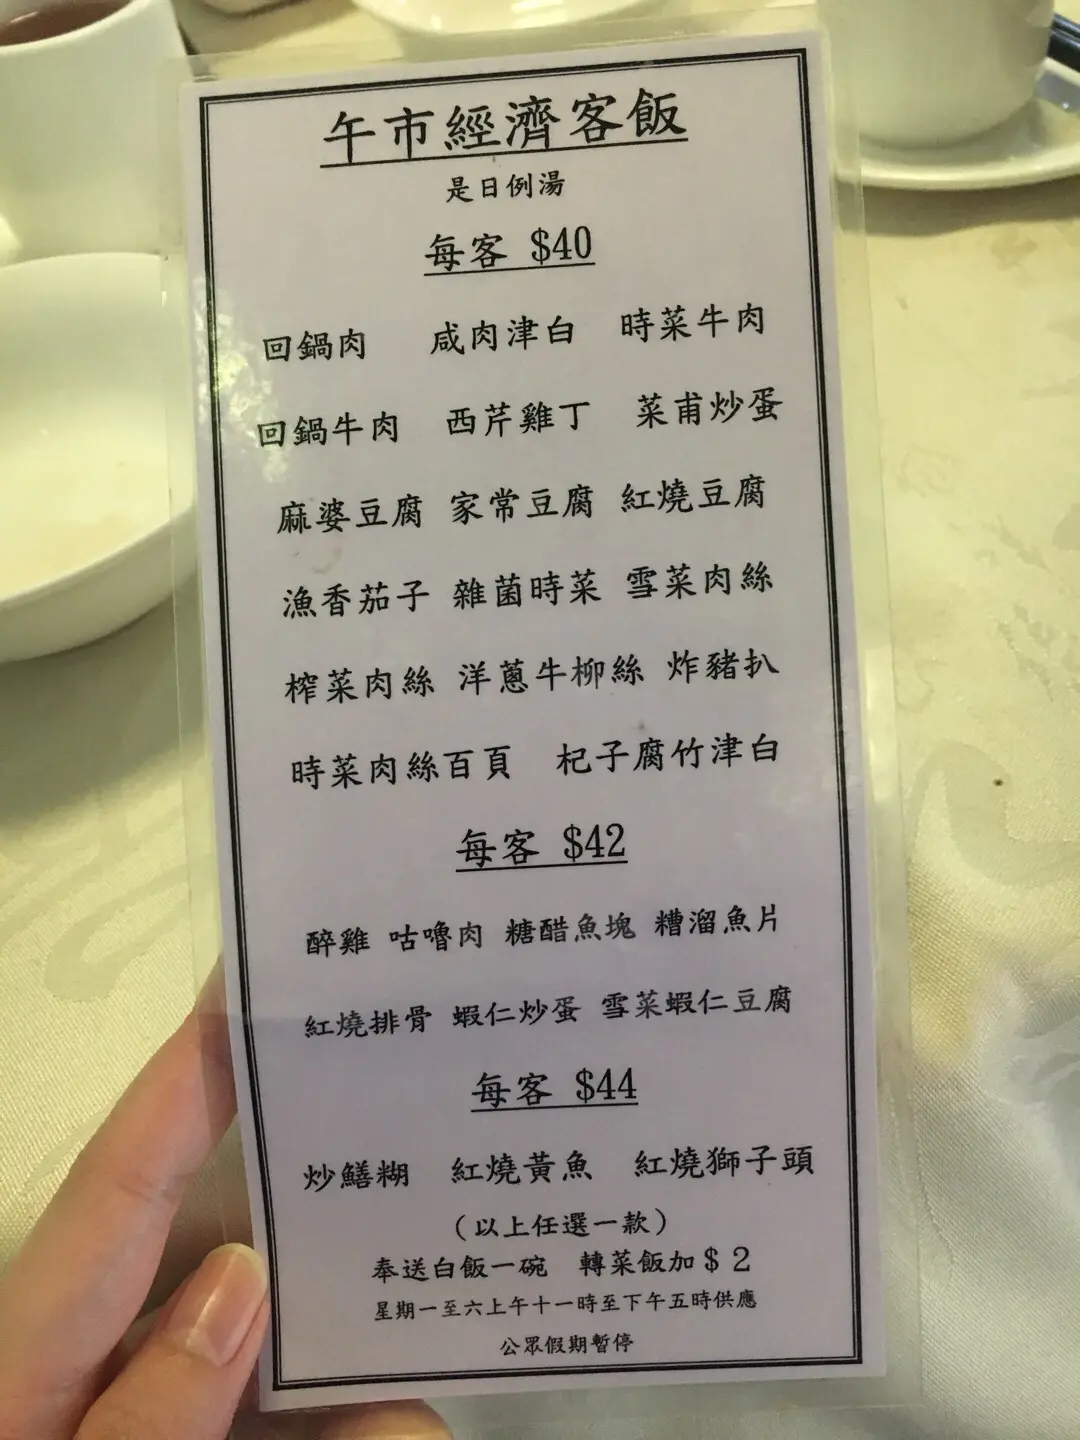 午市經濟客飯
是日例湯
每客 $40
回鍋肉 咸肉津白 時菜牛肉
回鍋牛肉 西芹雞丁 菜甫炒蛋
麻婆豆腐 家常豆腐 紅燒豆腐
漁香茄子 雜菌時菜 雪菜肉絲
榨菜肉絲 洋蔥牛柳絲 炸豬扒
時菜肉絲百頁 杞子腐竹津白
每客 $42
醉雞 咕嚕肉 糖醋魚塊 糟溜魚片
紅燒排骨 蝦仁炒蛋 雪菜蝦仁豆腐
每客 $44
炒鱔糊 紅燒黃魚 紅燒獅子頭
（以上任選一款）
奉送白飯一碗 轉菜飯加＄２
星期一至六上午十一時至下午五時供應
公眾假期暫停